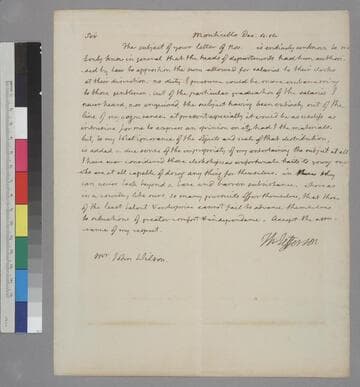 Sir Monticello Dec.
The subject of your letter of Nov. is entirely unknown to me
I only know in general that the heads of departments had been authori-
sed by law to apportion the sum allowed for salaries to their clerks
at their discretion. no duty I presume could be more embarrassing
to those gentlemen. but of the particular graduation of the salaries I
never heard, nor enquired, the subject having been entirely out of the
line of my cognisance. at present especially it would be as useless as
intrusive for me to express an opinion on it, had I the materials.
but, to my total ignorance of the effects and rule of that distribution,
is added a due sense of the impropriety of my entertaining the subject at all.
I have ever considered these clerkships as unfortunate baits to young men
who are at all capable of doing any thing for themselves. in them they
can never look beyond a bare and barren subsistence. whereas
in a country like ours, so many pursuits offer themselves, that those
of the least talent & enterprise cannot fail to advance themselves
to situations of greater comfort & independance. Accept the assu-
rance of my respect.
Th: Jefferson
Mr John Wilson